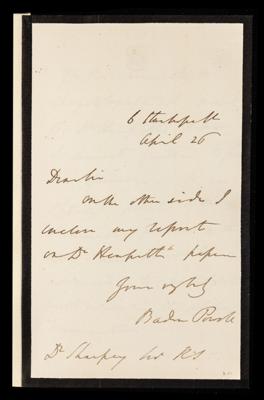 6 Stanhope St
April 26
Dear Sir
on the other side I
enclose my report
on Dr paper
Yours
Baden Powell
Dr Sharpey Sec RS